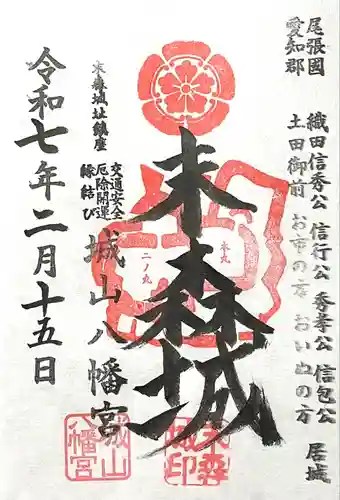 尾張国
愛知郡
織田信秀公 信行公 秀孝公 信包公 居城
土田御前 お市の方 おいぬの方
末森城
本丸
二ノ丸
末森城印
末森城址鎮座
交通安全
厄除開運
縁結び
城山八幡宮
城山八幡宮
令和七年二月十五日